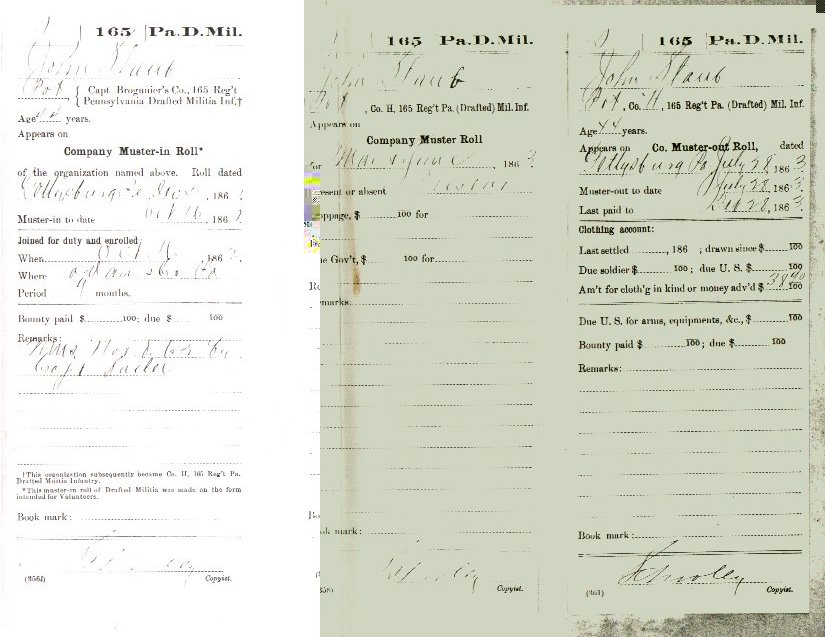 165 Pa. D. Mil.
John Staub
Pvt { Capt. Brogunier's Co., 165 Reg't
Pennsylvania Drafted Militia Inf.†
Age years.
Appears on
Company Muster-in Roll*
of the organization named above. Roll dated
Gettysburg Pa , 186
Muster-in to date Oct 16 , 186 2
Joined for duty and enrolled:
When Oct , 186 2.
Where Adams Co Pa
Period 9 months.
Bounty paid $ 100; due $ 100
Remarks:
by
Capt
†This organization subsequently became Co. H, 165 Reg't Pa.
Drafted Militia Infantry.
*This muster-in roll of Drafted Militia was made on the form
intended for Volunteers.
Book mark:
(356f) Copyist.
165 Pa. D. Mil.
John Staub
Pvt, Co. H, 165 Reg't Pa. (Drafted) Mil. Inf.
Appears on
Company Muster Roll
for 186 3
resent or absent Present
oppage, $ 100 for
ue Gov't, $ 100 for
emarks:
ok mark:
Copyist.
165 Pa. D. Mil.
John Staub
Pvt, Co. H, 165 Reg't Pa. (Drafted) Mil. Inf.
Age 44 years.
Appears on Co. Muster-out Roll, dated
Gettysburg Pa July 28, 186 3
Muster-out to date July 28, 186 3.
Last paid to Dec 28, 186
Clothing account:
Last settled , 186 ; drawn since $ 100
Due soldier $ 100; due U. S. $ 100
Am't for cloth'g in kind or money adv'd $ 38 40 100
Due U. S. for arms, equipments, &c., $ 100
Bounty paid $ 100; due $ 100
Remarks:
Book mark:
(361) Copyist.